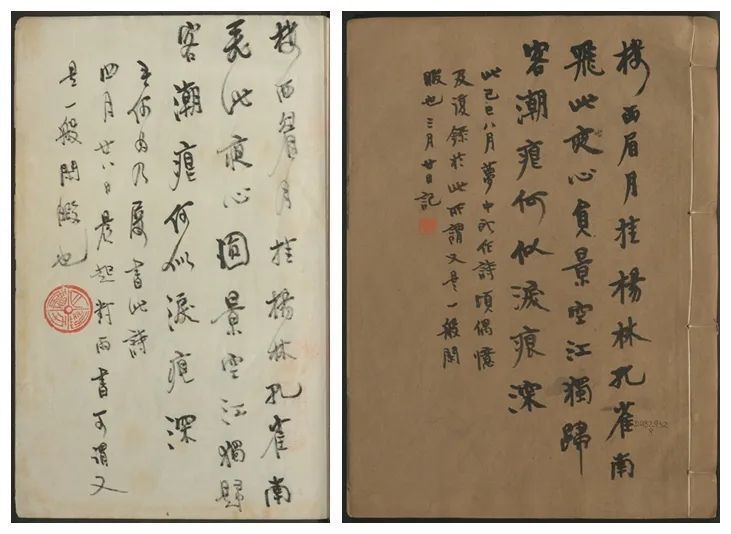 樓西眉月挂楊林孔雀南
飛此夜心圓景空江獨歸
客潮痕何似淚痕深
主何為乃屢書此詩
四月廿八日晨起對雨書可謂又
是一般閒暇也
樓西眉月挂楊林孔雀南
飛此夜心員景空江獨歸
客潮痕何似淚痕深
此己巳八月夢中所作詩頃偶憶
及漫錄於此所謂又是一般閒
暇也三月廿日記